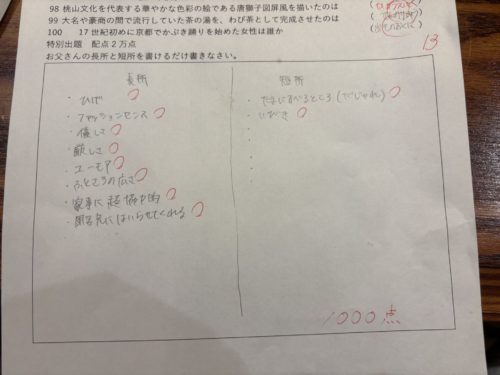 98 桃山文化を代表する華やかな色彩の絵である唐獅子図屏風を描いたのは
99 大名や豪商の間で流行していた茶の湯を、わび茶として完成させたのは
100 17世紀初めに京都でかぶき踊りを始めた女性は誰か
特別出題 配点2万点
お父さんの長所と短所を書けるだけ書きなさい。
13
長所
短所
・ひげ
・ファッションセンス
・優しさ
・厳しさ
・ユーモア
・ふところの広さ
・家事に超協力的
・風呂先にはいらせてくれる
・たまにすべるところ(だじゃれ)
・いびき
1000点